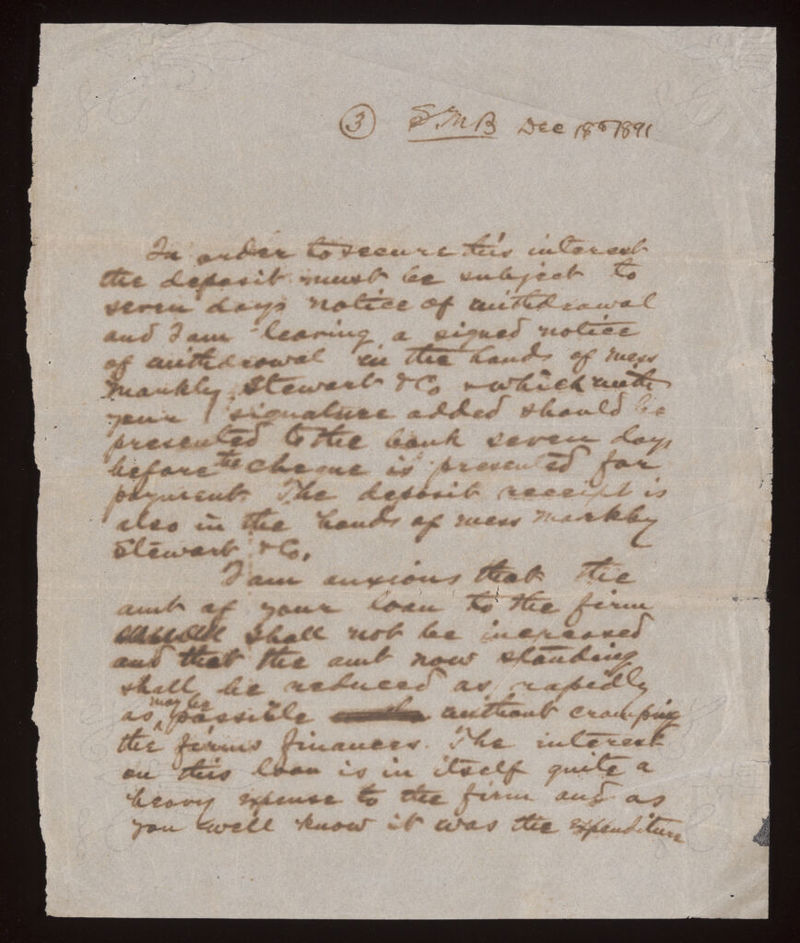 3 S.M.B Dec 18th 1891
In order to secure this interest
the deposit must be subject to
seven days notice of withdrawal
and I am leaving a signed notice
of withdrawal in the hands of mess
Markby Stewart & Co & which with
your signature added should be
presented to the bank seven days
before the cheque is presented for
payment. The deposit receipt is
also in the hands of mess Markby
Stewart & Co.
I am anxious that the
amt of your loan to the firm
shall not be increased
and that the amt now standing
shall be reduced as rapidly
as may be possible without cramping
the firms finances. The interest
on this loan is in itself quite a
heavy expense to the firm and as
you well know it was the expenditure